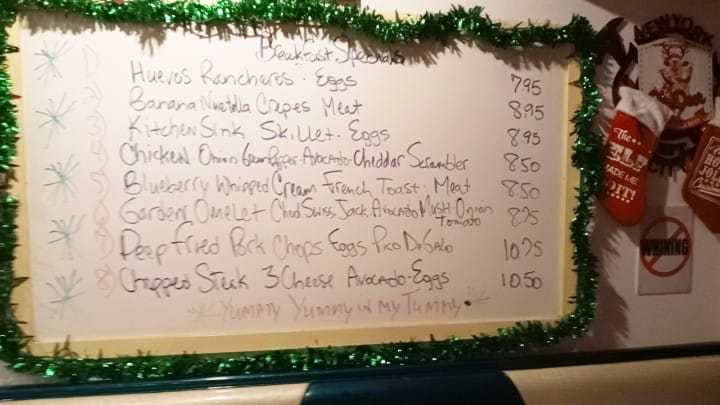 Breakfast Specials
1) Huevos Rancheros · Eggs 7.95
2) Banana Nuetalla Crepes Meat 8.95
3) Kitchen Sink Skillet · Eggs 8.95
4) Chicken · Onion Avocado · Cheddar Scrambler 8.50
5) Blueberry Whipped Cream French Toast · Meat 8.50
6) Garden Omelet Ched Swiss Jack Avocado Mush Onion Tomato 8.75
7) Deep Fried Pork Chops Eggs Pico DeGalo 10.75
8) Chopped Steak 3 Cheese Avocado · Eggs 10.50
Yummy Yummy in my Tummy
NEW YORK
The
MADE ME
DO IT!
WHINING